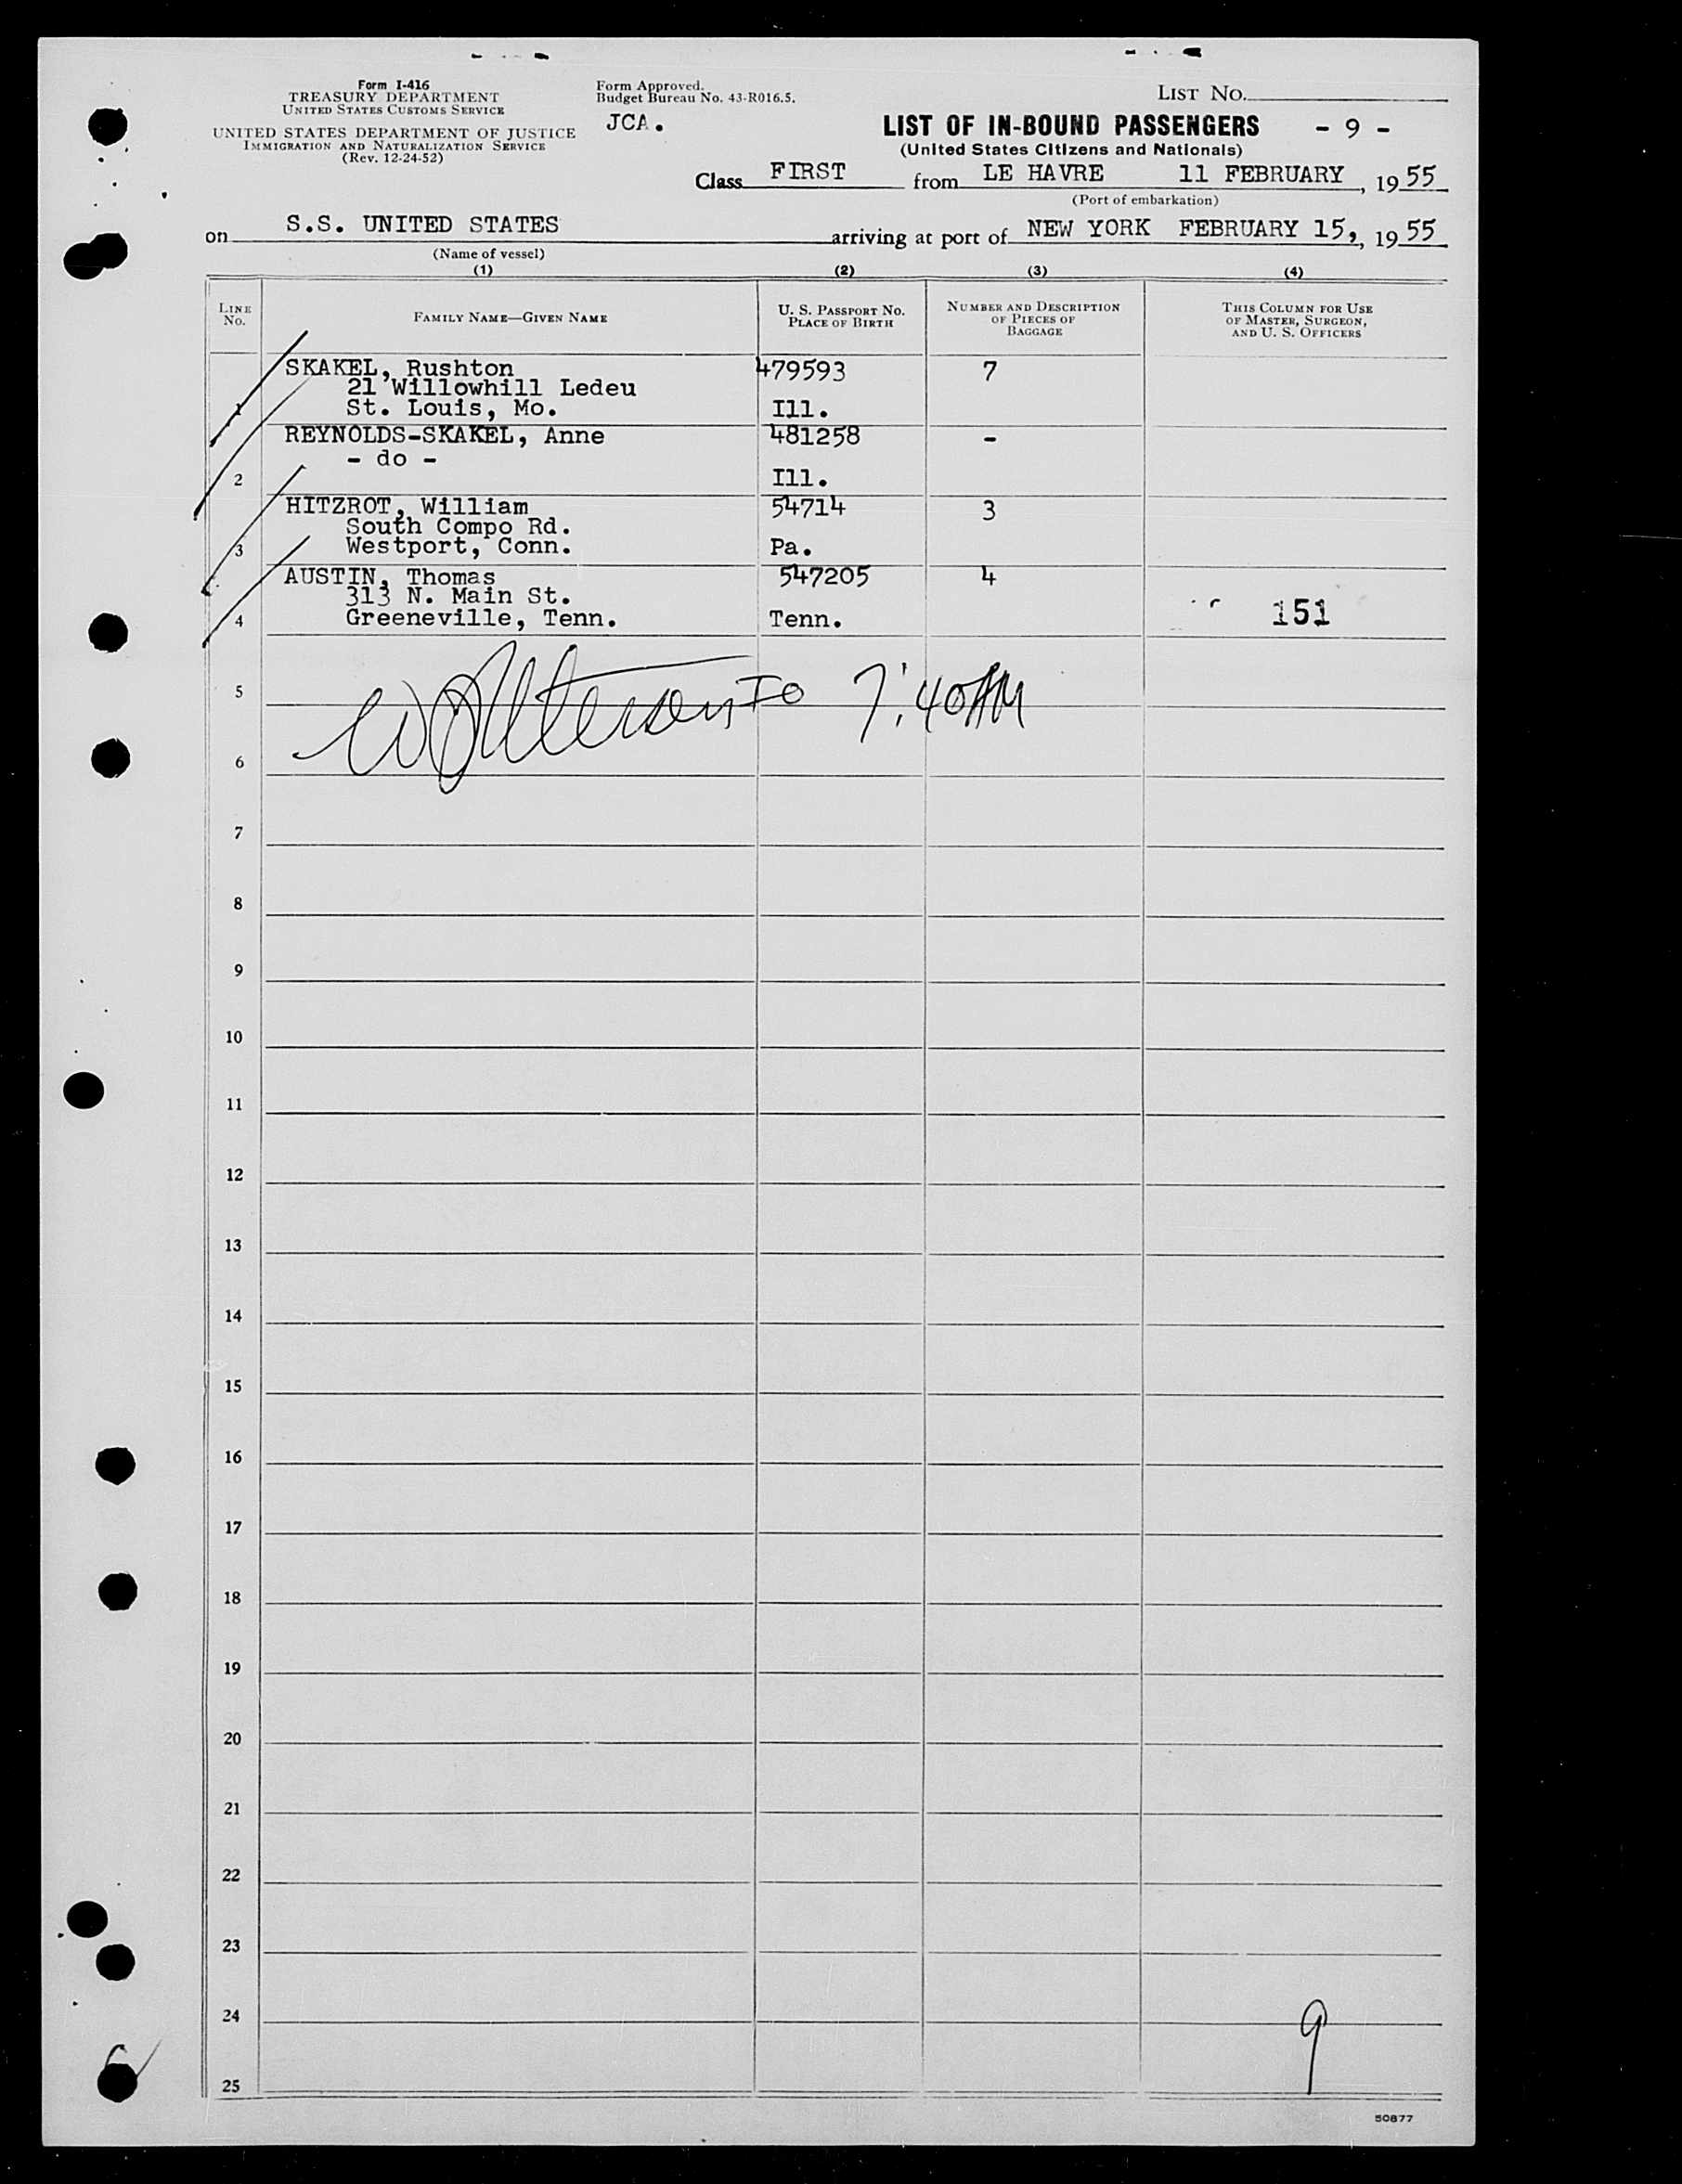 Form I-416
TREASURY DEPARTMENT
UNITED STATES CUSTOMS SERVICE
UNITED STATES DEPARTMENT OF JUSTICE
IMMIGRATION AND NATURALIZATION SERVICE
(Rev. 12-24-52)
Form Approved.
Budget Bureau No. 43-R016.5.
JCA.
LIST No.
LIST OF IN-BOUND PASSENGERS - 9 -
(United States Citizens and Nationals)
Class FIRST from LE HAVRE 11 FEBRUARY, 1955
(Port of embarkation)
on S.S. UNITED STATES arriving at port of NEW YORK FEBRUARY 15,, 1955
(Name of vessel)
(1) (2) (3) (4)
LINE No. FAMILY NAME—GIVEN NAME U. S. PASSPORT No. PLACE OF BIRTH NUMBER AND DESCRIPTION OF PIECES OF BAGGAGE THIS COLUMN FOR USE OF MASTER, SURGEON, AND U. S. OFFICERS
SKAKEL, Rushton 479593 7
21 Willowhill Ledeu
1 St. Louis, Mo. Ill.
REYNOLDS-SKAKEL, Anne 481258 -
- do -
2 Ill.
HITZROT, William 54714 3
South Compo Rd.
3 Westport, Conn. Pa.
AUSTIN, Thomas 547205 4
313 N. Main St.
4 Greeneville, Tenn. Tenn. 151
5 7:40AM
6
7
8
9
10
11
12
13
14
15
16
17
18
19
20
21
22
23
24 9
25
50877